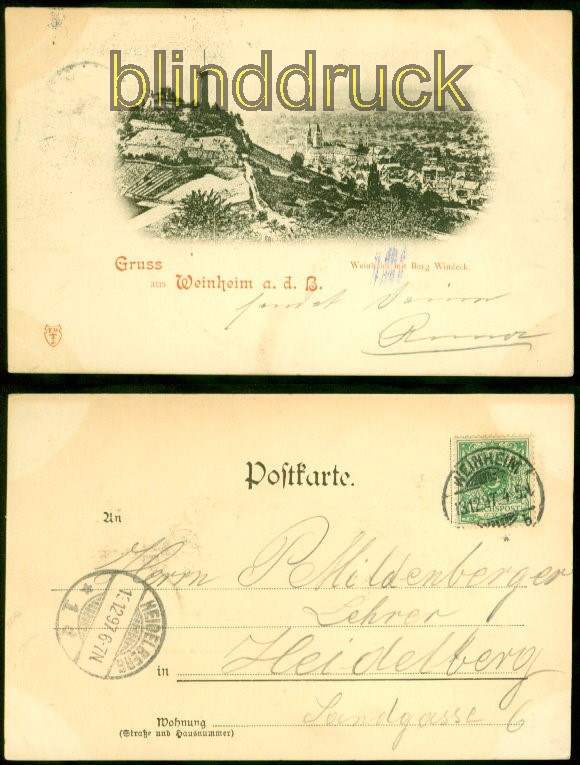 blinddruck
Gruss
aus Weinheim a. d. B.
Weinheim mit Burg Windeck.
sendet
Postkarte.
WEINHEIM
13.12.97. 4-5N
REICHSPOST
b
An
Herrn P. Mildenberger
Lehrer
HEIDELBERG
13.12.97. 6-7N
* 1 a
in Heidelberg
Wohnung Sandgasse 6
(Straße und Hausnummer)